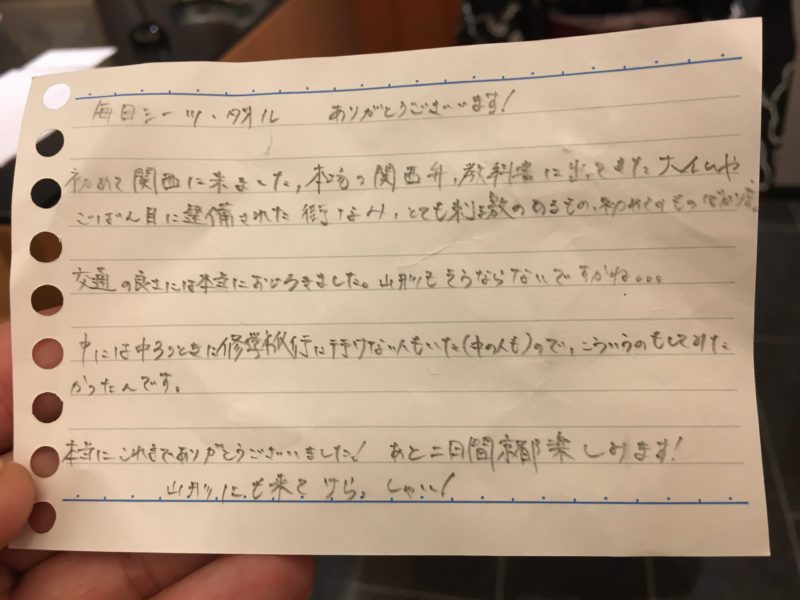 毎日シーツ・タオル ありがとうございます!
初めて関西に来ました,本場の関西弁,教科書に出てきた大仏や
ごばん目に整備された街なみ,とても刺激のあるもの,初めてのものばかり
交通の良さには本当におどろきました。山形もそうならないですかね。。。
中には中3のときに修学旅行に行けない人もいた(中の人も)ので,こういうのもしてみた
かったんです。
本当にこれまでありがとうございました! あと二日間京都楽しみます!
山形にも来てけらっしゃい!